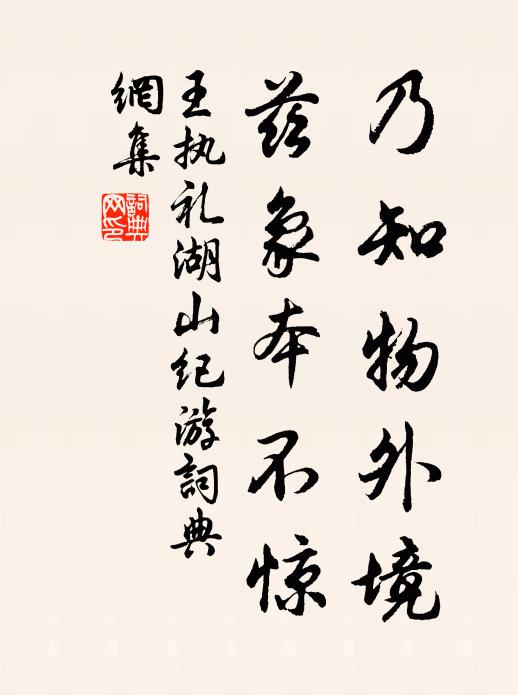 乃知物外境
兹象本不惊
王执礼湖山纪游词典
網集
詞典
网印